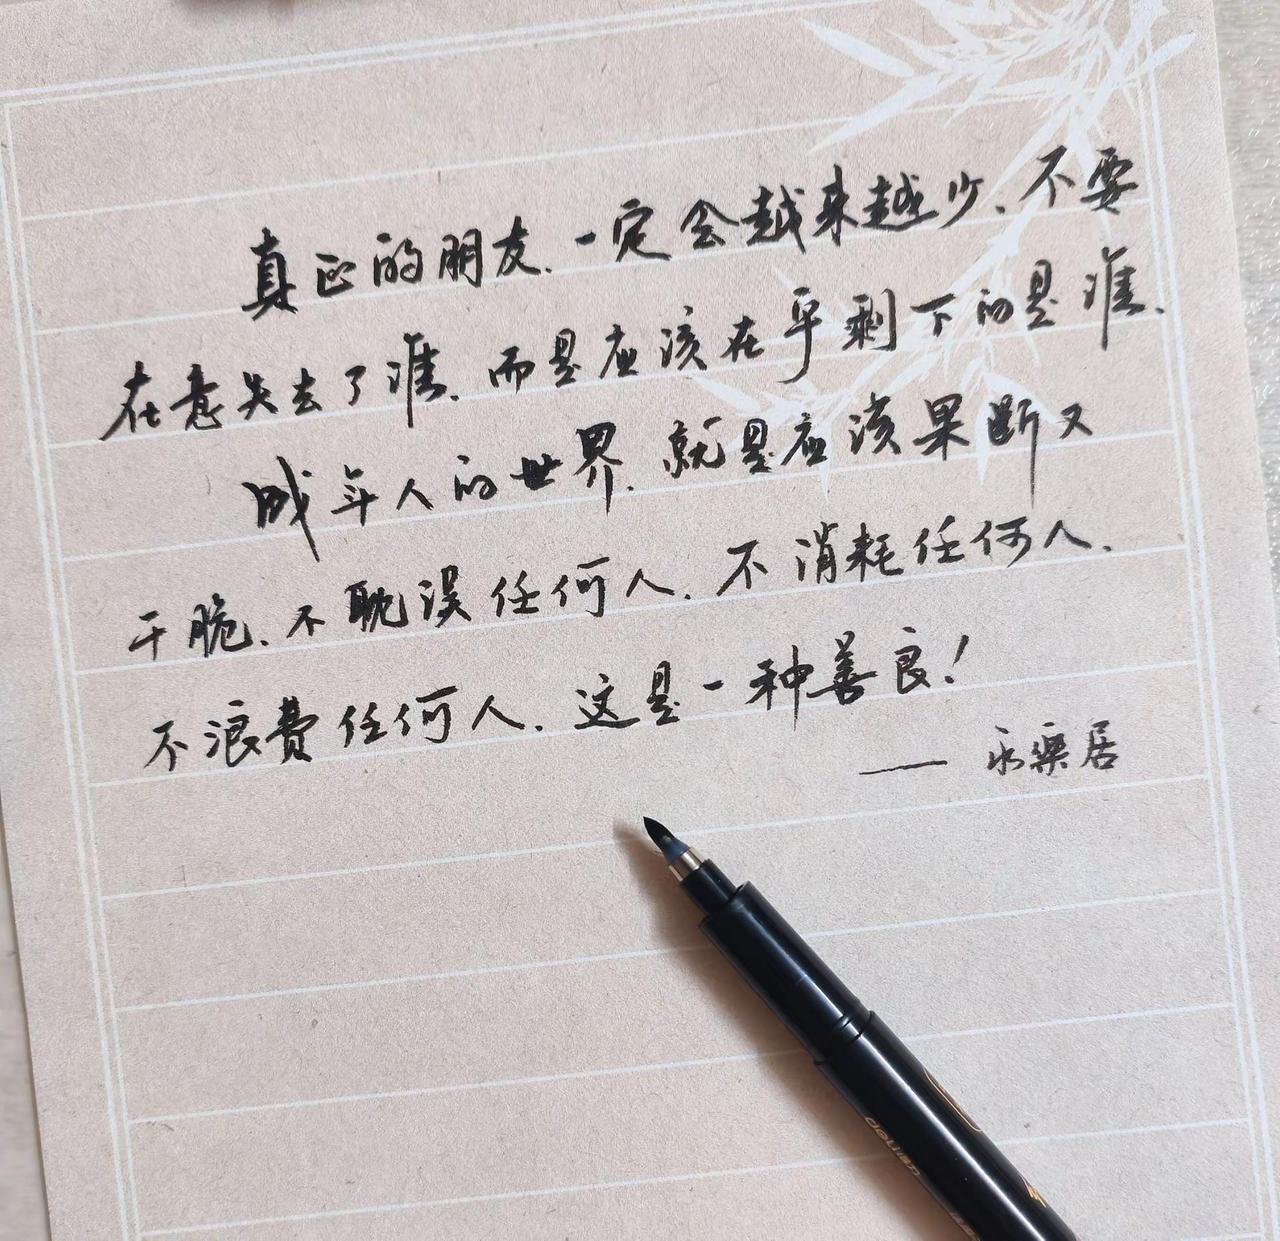 真正的朋友、一定会越来越少、不要
在意失去了谁、而是应该在乎剩下的是谁、
成年人的世界、就是应该果断又
干脆、不耽误任何人、不消耗任何人、
不浪费任何人、这是一种善良！
—— 永乐居
deli